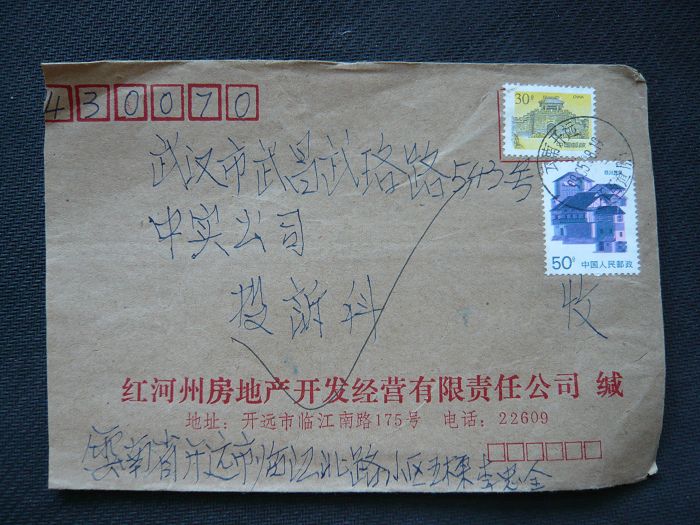 430070
30分
CHINA
中国邮政
武汉市武昌武珞路543号
中实公司
50分
中国人民邮政
投诉科 收
红河州房地产开发经营有限责任公司 缄
地址：开远市临江南路175号 电话：22609
云南省开远市临江北路小区五栋李忠全